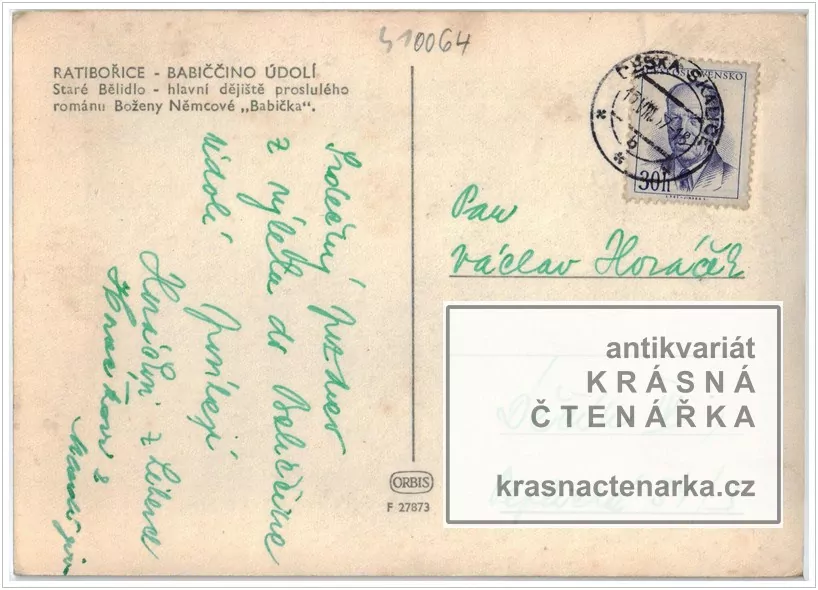 410064
RATIBOŘICE - BABIČČINO ÚDOLÍ
Staré Bělidlo - hlavní dějiště proslulého
románu Boženy Němcové „Babička".
Srdečný pozdrav
z výletu do Babiččina
údolí
posílají
Horáčkovi z Liberce
ČESKÁ SKALICE
ČESKOSLOVENSKO
30h
Pan
Václav Horáček
antikvariát
KRÁSNÁ
ČTENÁŘKA
krasnactenarka.cz
ORBIS
F 27873